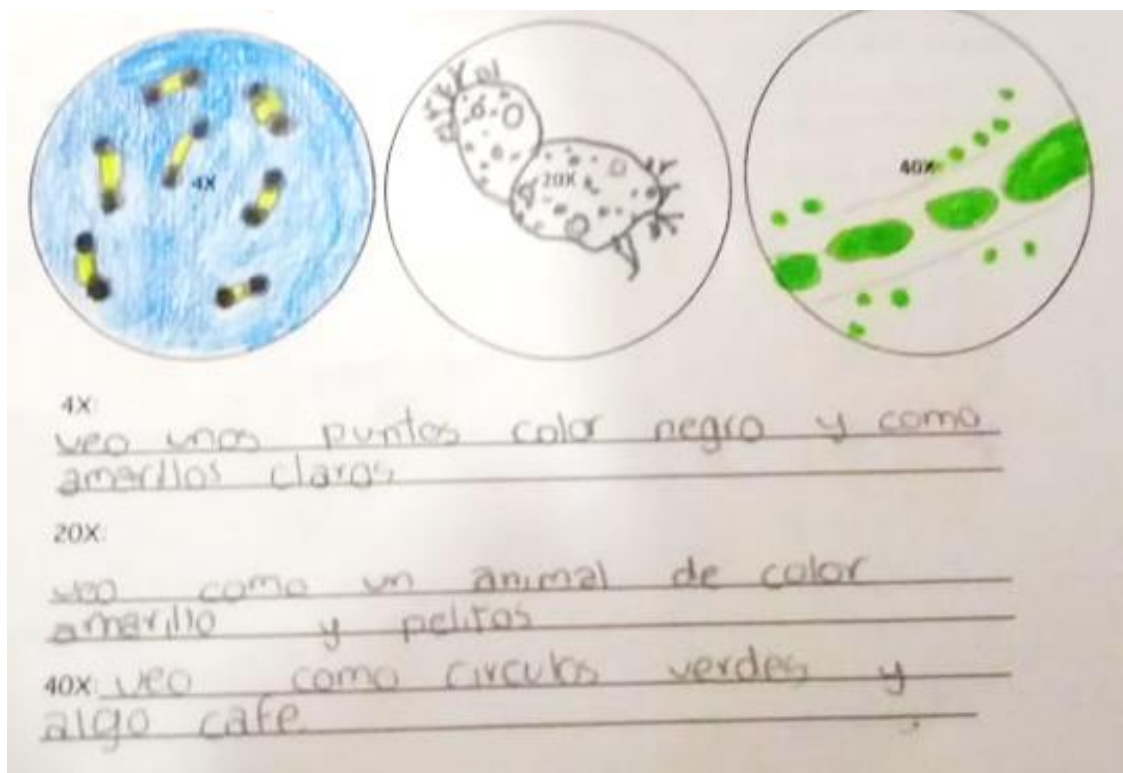 4X
20X
40X
4X:
veo unos puntos color negro y como
amarillos claros
20X:
veo como un animal de color
amarillo y pelitos
40X: veo como circulos verdes y
algo cafe